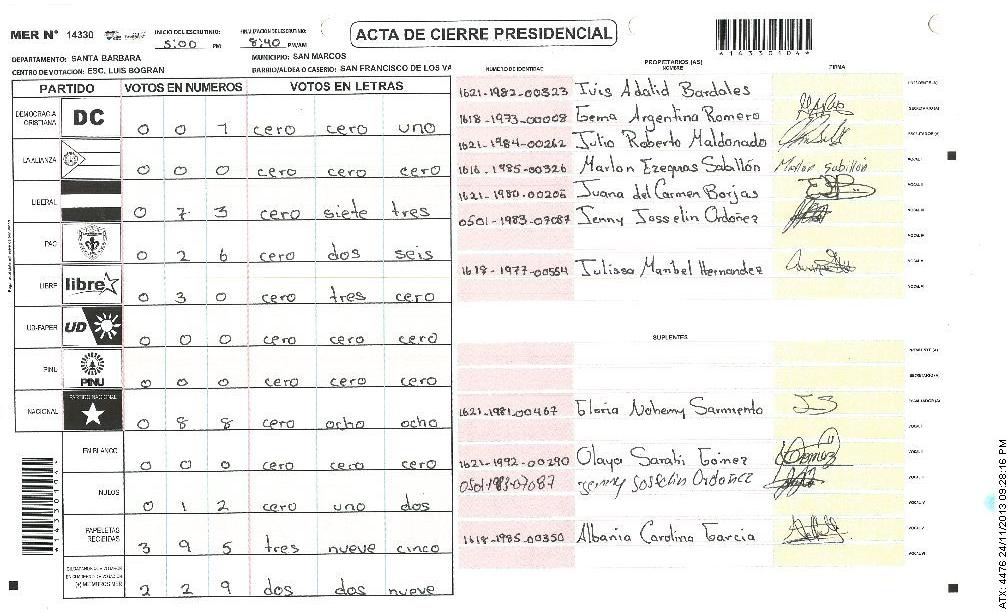 MER N° 14330
INICIO DEL ESCRUTINIO: 5:00 PM
FINALIZACION DEL ESCRUTINIO: 8:40 PM/AM
ACTA DE CIERRE PRESIDENCIAL
4143301041
DEPARTAMENTO: SANTA BARBARA
MUNICIPIO: SAN MARCOS
CENTRO DE VOTACION: ESC. LUIS BOGRAN
BARRIO/ALDEA O CASERIO: SAN FRANCISCO DE LOS VA
PARTIDO VOTOS EN NUMEROS VOTOS EN LETRAS
DEMOCRACIA CRISTIANA DC 0 0 1 cero cero uno
LA ALIANZA 0 0 0 cero cero cero
LIBERAL 0 7 3 cero siete tres
PAC 0 2 6 cero dos seis
LIBRE libre 0 3 0 cero tres cero
UD-FAPER UD 0 0 0 cero cero cero
PINU PINU 0 0 0 cero cero cero
NACIONAL PARTIDO NACIONAL 0 8 8 cero ocho ocho
EN BLANCO 0 0 0 cero cero cero
NULOS 0 1 2 cero uno dos
PAPELETAS RECIBIDAS 3 9 5 tres nueve cinco
(+) MIEMBROS MER 2 2 9 dos dos nueve
NUMERO DE IDENTIDAD
PROPIETARIOS (AS)
NOMBRE
FIRMA
1621-1982-00323 Iris Adalid Bardales
1618-1973-00008 Gema Argentina Romero
1621-1984-00262 Julio Roberto Maldonado
1616-1985-00326 Marlon Ezequras Sabillón Marlon Sabillón
1621-1980-00206 Juana del Carmen Borjas
0501-1983-07087 Jenny Josselin Ordoñez
1618-1977-00554 Julissa Maribel Hernandez
SUPLENTES
1621-1981-00467 Gloria Nohemy Sarmiento
1621-1992-00290 Olaya Sarahi Gómez
0501-1983-07087 Jenny Josselin Ordoñez
1618-1985-00350 Albania Carolina Garcia
ATX: 4476 24/11/2013 09:28:16 PM